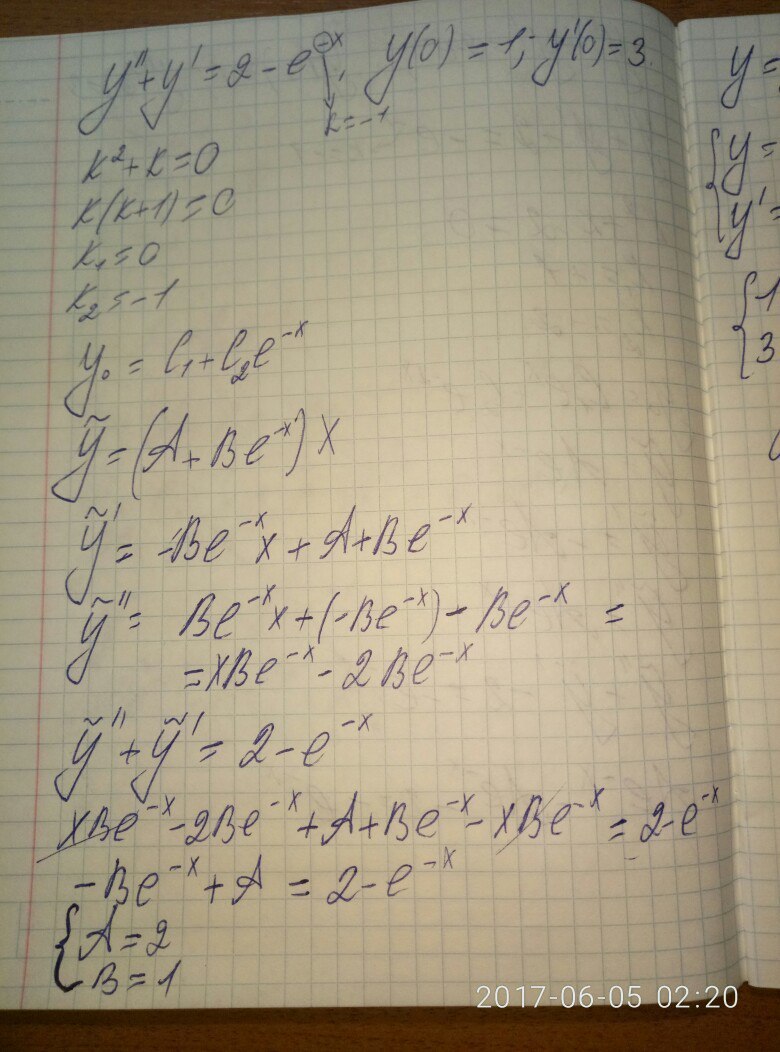 y''+y'=2-e^{-x}, y(0)=1; y'(0)=3.
k=-1
k²+k=0
k(k+1)=0
k₁=0
k₂=-1
y₀=C₁+C₂e^{-x}
ỹ=(A+Be^{-x})x
ỹ'=-Be^{-x}x+A+Be^{-x}
ỹ''=Be^{-x}x+(-Be^{-x})-Be^{-x}=
=xBe^{-x}-2Be^{-x}
ỹ''+ỹ'=2-e^{-x}
xBe^{-x}-2Be^{-x}+A+Be^{-x}-xBe^{-x}=2-e^{-x}
-Be^{-x}+A=2-e^{-x}
{A=2
B=1
y=
{y=
y'=
{1
3
2017-06-05 02:20